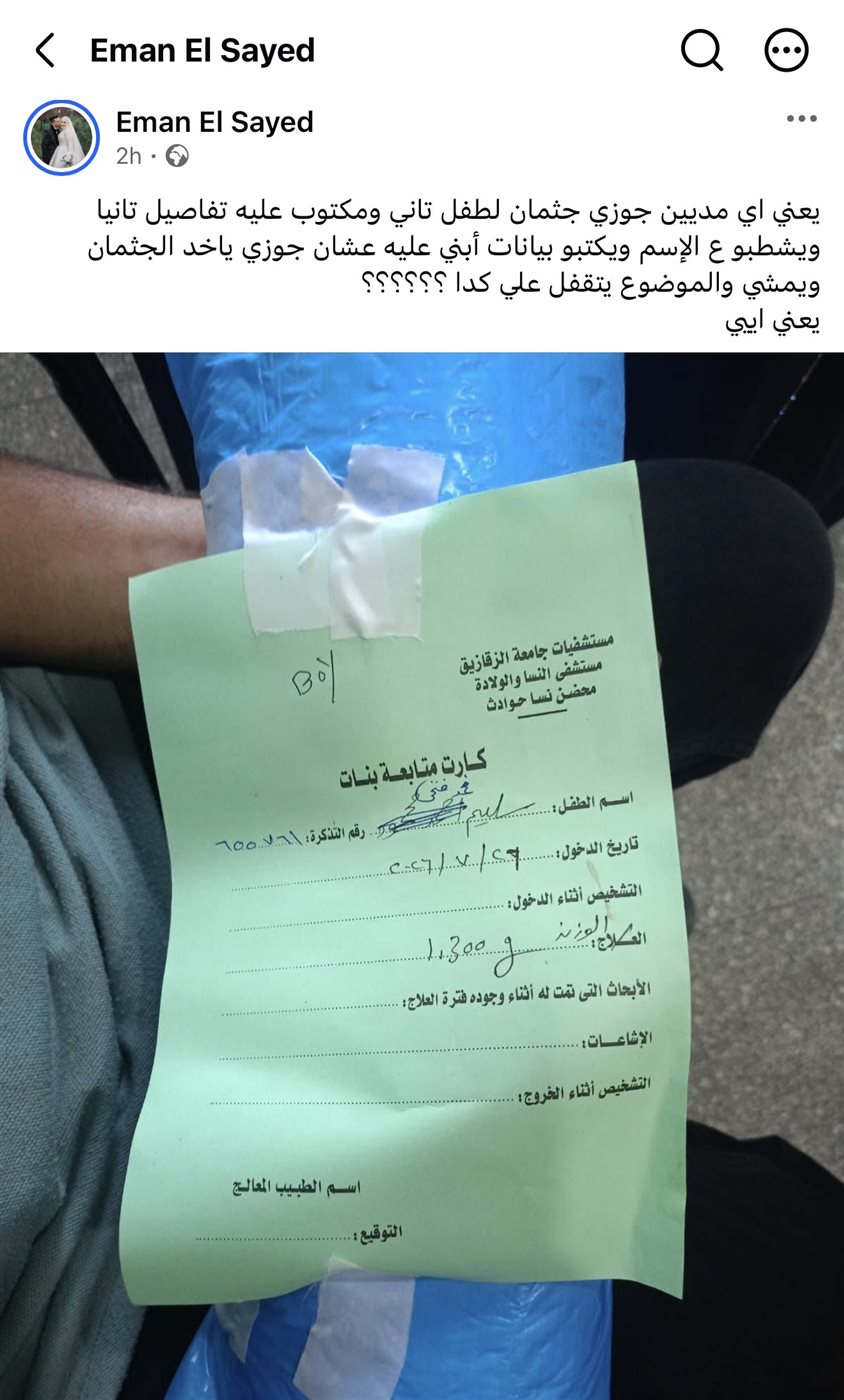 Eman El Sayed
Eman El Sayed
2h ·
يعني اي مديين جوزي جثمان لطفل تاني ومكتوب عليه تفاصيل تانيا
ويشطبو ع الإسم ويكتبو بيانات أبني عليه عشان جوزي ياخد الجثمان
ويمشي والموضوع يتقفل علي كدا ؟؟؟؟؟؟
يعني ايبي
مستشفيات جامعة الزقازيق
مستشفى النسا والولادة
محضن نسا حوادث
Boy
كارت متابعة بنات
اسم الطفل: سليم رقم التذكرة: ٦٥٥٧٦١
تاريخ الدخول: ٢٠٢٦/٧/٢٦
التشخيص أثناء الدخول:
العلاج: الوزن 1.300 g
الأبحاث التى تمت له أثناء وجوده فترة العلاج:
الإشاعات:
التشخيص أثناء الخروج:
اسم الطبيب المعالج
التوقيع: